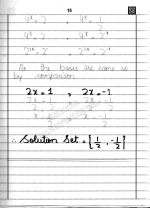 13
4ˣ = 2 , 4ˣ = 1/2
4ˣ = 2 , 4ˣ = 2⁻¹
2²ˣ = 2 , 2²ˣ = 2⁻¹
As the bases are same so
by comparison
2x = 1 , 2x = -1
2x/2 = 1/2 , 2x/2 = -1/2
x = 1/2 , x = -1/2
∴ Solution Set = {1/2, -1/2}